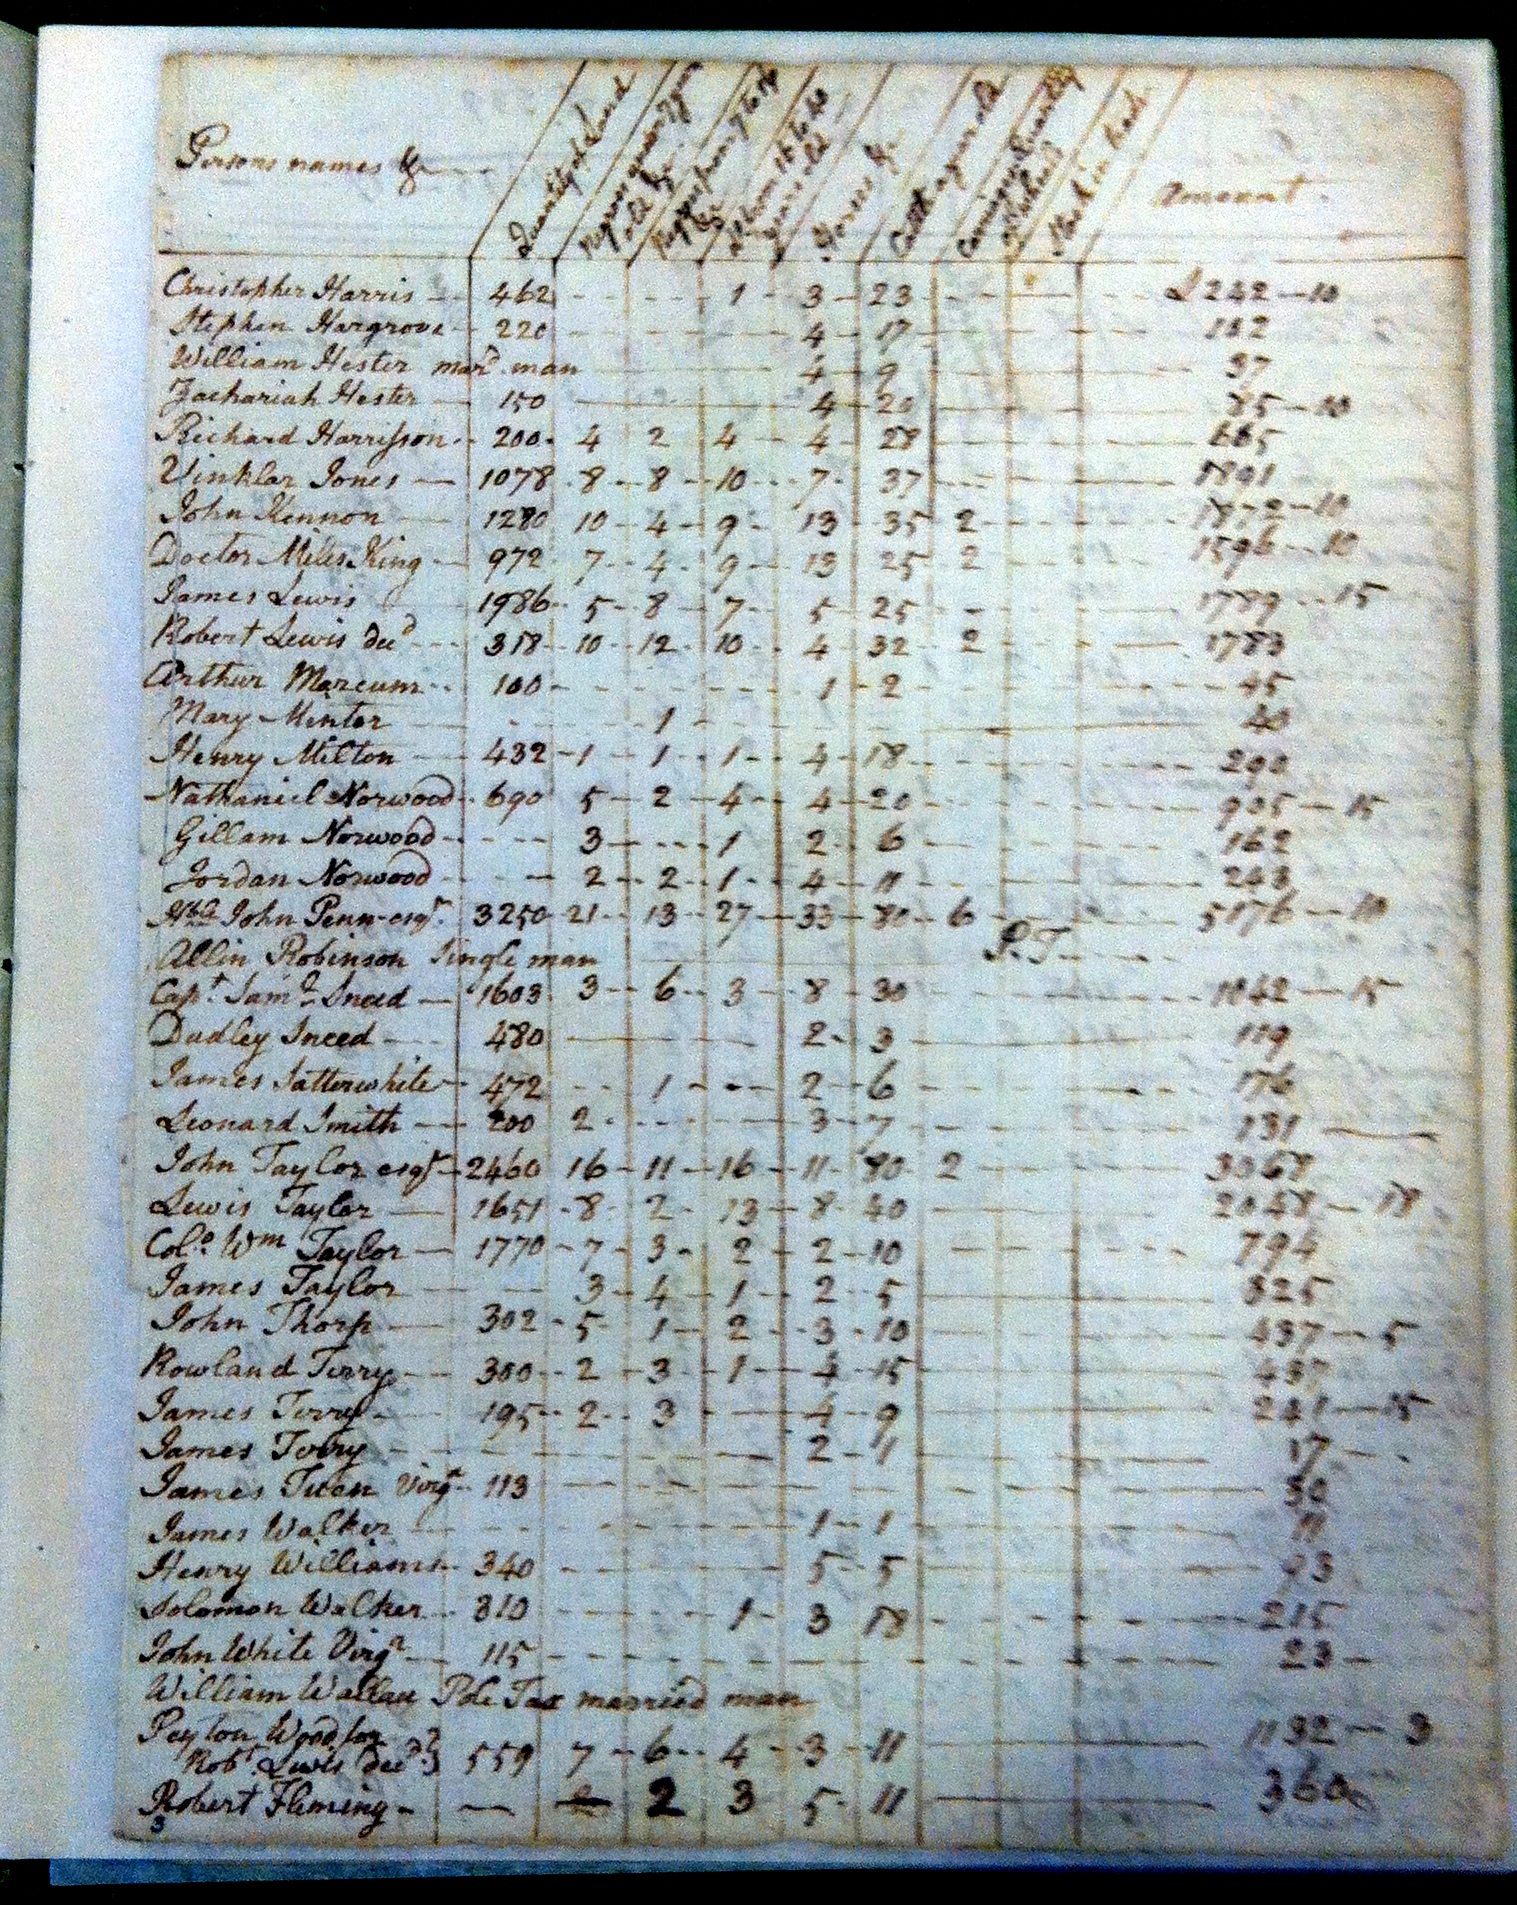 Persons names &c
Quantity of Land
Negroes
old &c
Negroes from 7 to
&c
from 16 to 40
years old
Horses &c
Cattle
Carriages
Wheels
Stock in trade
Amount
Christopher Harris 462 1 3 23 £242-10
Stephen Hargrove 220 4 17 102
William Hester mard. man 4 9 37
Zachariah Hester 150 4 20 85-10
Richard Harrisson 200 4 2 4 4 28 665
Vinkler Jones 1078 8 8 10 7 37 1891
John Kennon 1280 10 4 9 13 35 2 -10
Doctor Miles King 972 7 4 9 13 25 2 1596-10
James Lewis 1986 5 8 7 5 25 1789-15
Robert Lewis decd 358 10 12 10 4 32 2 1783
Arthur Marcum 100 1 2 45
Mary Minter 1 40
Henry Milton 432 1 1 1 4 18 290
Nathaniel Norwood 690 5 2 4 4 20 905-15
Gillam Norwood 3 1 2 6 162
Jordan Norwood 2 2 1 4 11 243
Hble John Penn esqr. 3250 21 13 27 33 80 6 5176-10
Allin Robinson Single man P.T
Capt. Saml Sneed 1603 3 6 3 8 30 1042-15
Dudley Sneed 480 2 3 119
James Satterwhite 472 1 2 6 176
Leonard Smith 200 2 3 7 131
John Taylor esqr 2460 16 11 16 11 80 2 3068
Lewis Taylor 1651 8 2 13 8 40 2048-18
Colo. Wm Taylor 1770 7 3 2 2 10 794
James Taylor 3 4 1 2 5 325
John Thorp 302 5 1 2 3 10 437-5
Rowland Terry 300 2 3 1 4 15 437
James Terry 195 2 3 4 9 241-15
James Terry 2 11 17
James Virga 113 30
James Walker 1 1 11
Henry Williams 340 5 5 93
Solomon Walker 310 1 3 18 215
John White Virga 115 23
William Wallau Pole Tax married man
Peyton Wood for
Robt. Lewis decd. 559 7 6 4 3 11 1132-3
Robert Fleming 2 3 5 11 360
3